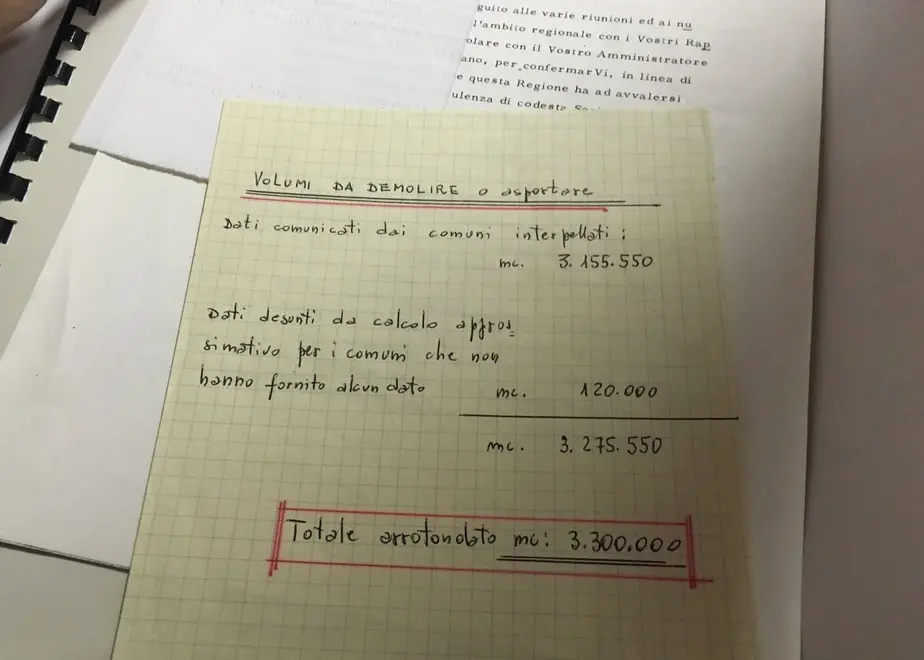 guito alle varie riunioni ed ai nu
l'ambito regionale con i Vostri Rap
olare con il Vostro Amministratore
ano, per confermarVi, in linea di
e questa Regione ha ad avvalersi
ulenza di codesta
VOLUMI DA DEMOLIRE o asportare
Dati comunicati dai comuni interpellati :
mc. 3.155.550
Dati desunti da calcolo appros=
simativo per i comuni che non
hanno fornito alcun dato mc. 120.000
mc. 3.275.550
Totale arrotondato mc: 3.300.000